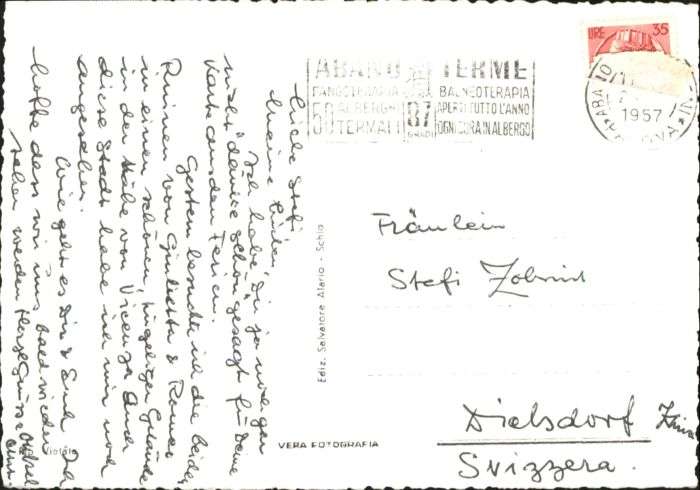 Liebe Stefi,
Meine Lieben,
Ich habe Dir ja noch gar
nicht "danke schön" gesagt für Deine
Karte aus den Ferien.
Gestern besuchte ich die beiden
Ruinen von Giulietta & Romeo
in einem schönen, hügeligen Gelände
in der Nähe von Vicenza. Auch
diese Stadt habe ich mir noch
angesehen.
Wie geht es Dir & Euch. Ich
hoffe dass wir uns bald wieder
sehen werden. Herzl. Grüsse
ABANO TERME
FANGOTERAPIA BALNEOTERAPIA
50 ALBERGHI 87 APERTI TUTTO L'ANNO
TERMALI GRADI OGNI CURA IN ALBERGO
LIRE 35
ABA
1957
Fräulein
Stefi Zobrist
Dielsdorf
Svizzera.
Ediz. Salvatore Alario - Schio
VERA FOTOGRAFIA